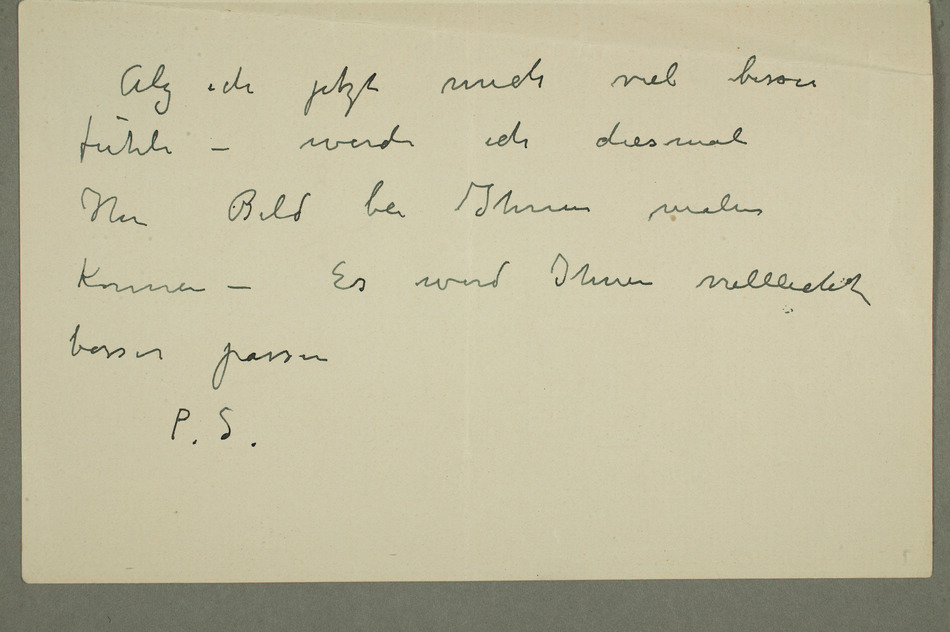 Alz ich jetzt mich viel besser
fühle – werde ich diesmal
Ihr Bild bei Ihnen malen
können – Es wird Ihnen vielleicht
besser passen
P. S.